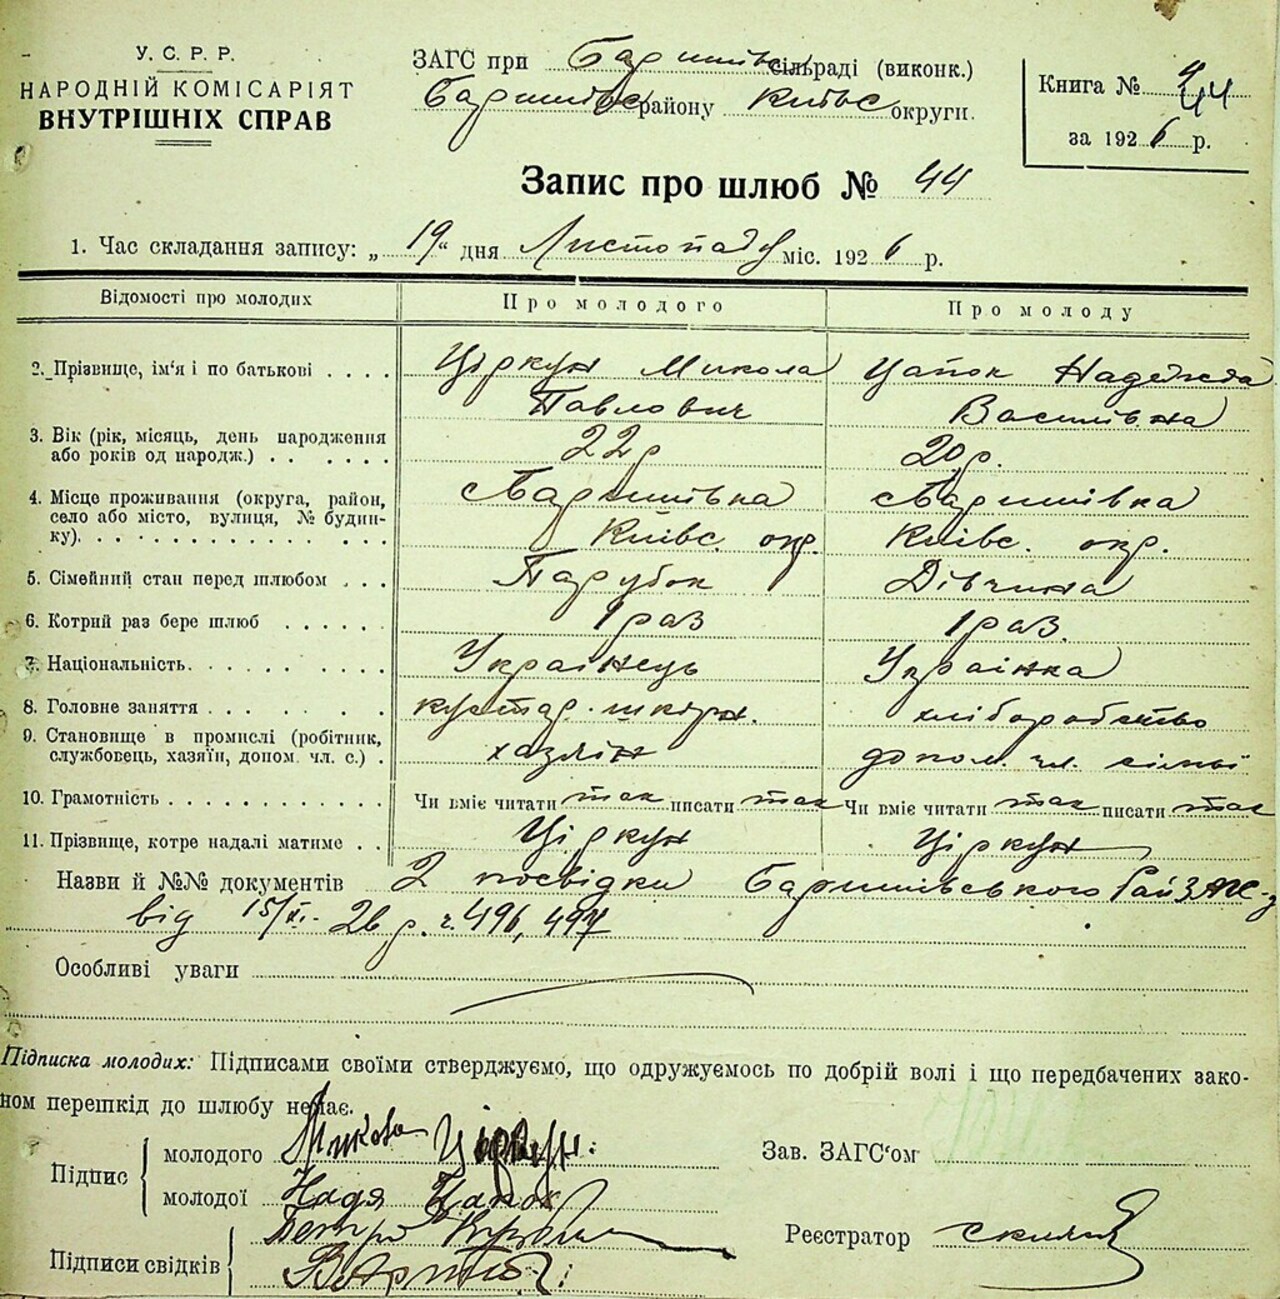 У. С. Р. Р.
НАРОДНІЙ КОМІСАРІЯТ
ВНУТРІШНІХ СПРАВ
ЗАГС при Баришівс сільраді (виконк.)
Баришівс району Київс округи.
Книга №
за 1926 р.
Запис про шлюб № 44
1. Час складання запису: „19“ дня Листопаду міс. 1926 р.
Відомості про молодих Про молодого Про молоду
2. Прізвище, ім‘я і по батькові . . . . Ціркун Микола Цапок Надежда
Павлович Василівна
3. Вік (рік, місяць, день народження
або років од народж.) . . . . . . 22 р 20 р.
4. Місце проживання (округа, район, с Баришівка с Баришівка
село або місто, вулиця, № будин-
ку). . . . . . . . . . . . . . . Київс. окр. Київс. окр.
5. Сімейний стан перед шлюбом . . . Парубок Дівчина
6. Котрий раз бере шлюб . . . . . . 1 раз 1 раз.
7. Національність. . . . . . . . . Українець Українка
8. Головне заняття . . . . . . . . кустар. шкірн. хліборобство
9. Становище в промислі (робітник,
службовець, хазяїн, допом. чл. с.) . хазяїн допом. чл. сім'ї
10. Грамотність . . . . . . . . . . . . Чи вміє читати так писати так Чи вміє читати так писати так
11. Прізвище, котре надалі матиме . . Ціркун Ціркун
Назви й №№ документів 2 посвідки Баришівського Рай ЗАГС-у
від 15/XI. 26 р. ч. 496, 497
Особливі уваги
Підписка молодих: Підписами своїми стверджуємо, що одружуємось по добрій волі і що передбачених зако-
ном перешкід до шлюбу немає.
Підпис
молодого Микола Ціркун
молодої Надя Цапок
Зав. ЗАГС‘ом
Підписи свідків Петро
Реєстратор